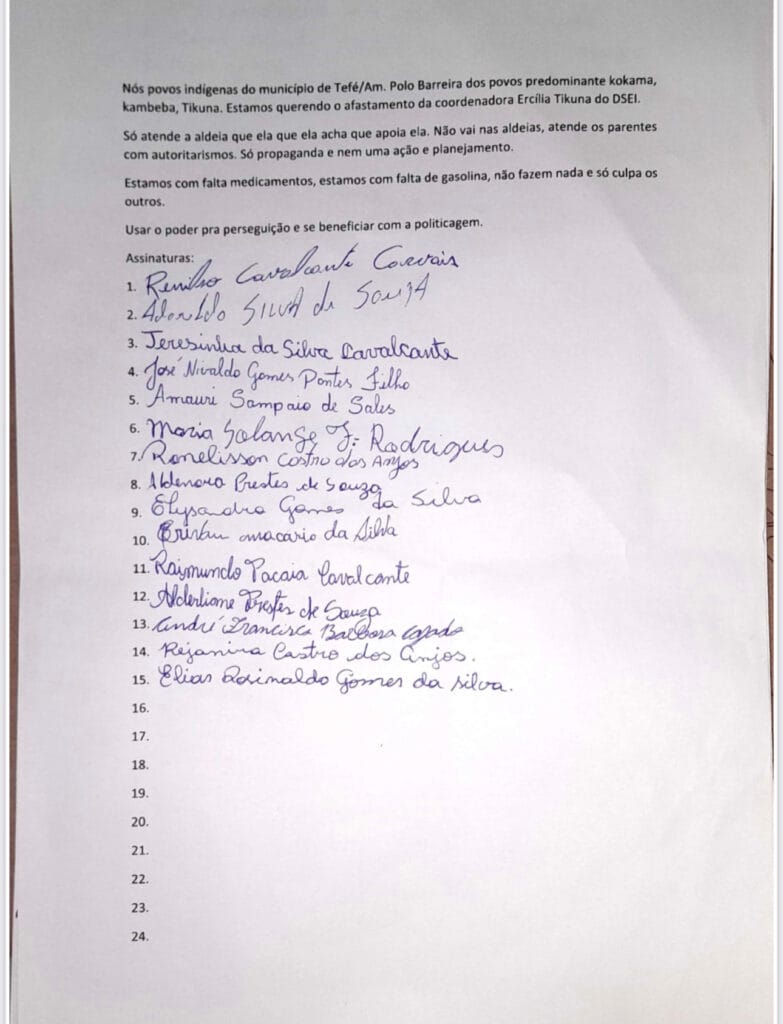 Nós povos indígenas do município de Tefé/Am. Polo Barreira dos povos predominante kokama,
kambeba, Tikuna. Estamos querendo o afastamento da coordenadora Ercília Tikuna do DSEI.
Só atende a aldeia que ela que ela acha que apoia ela. Não vai nas aldeias, atende os parentes
com autoritarismos. Só propaganda e nem uma ação e planejamento.
Estamos com falta medicamentos, estamos com falta de gasolina, não fazem nada e só culpa os
outros.
Usar o poder pra perseguição e se beneficiar com a politicagem.
Assinaturas:
1. Cavalcante
2. SILVA de Souza
3. Teresinha da Silva Cavalcante
4. José Nivaldo Gomes Pontes Filho
5. Amauri Sampaio de Sales
6. Maria Solange F. Rodrigues
7. Ronelisson Castro dos Anjos
8. Aldenora Prestes de Souza
9. Elysandra Gomes da Silva
10. macario da Silva
11. Raimundo Pacaia Cavalcante
12. Alderliane Prestes de Souza
13. André Francisco Barbosa
14. Rejanira Castro dos Anjos.
15. Elias Gomes da silva.
16.
17.
18.
19.
20.
21.
22.
23.
24.